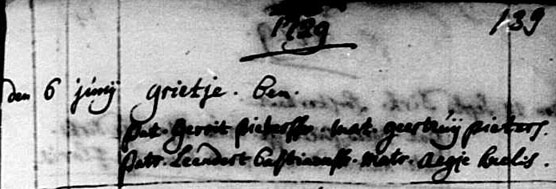 1729 139
den 6 junij grietje. ben.
pat. Gerrit pieterss. mat. geertruij pieters.
patr. Leendert bastiaanss. matr. Aegje kselis.